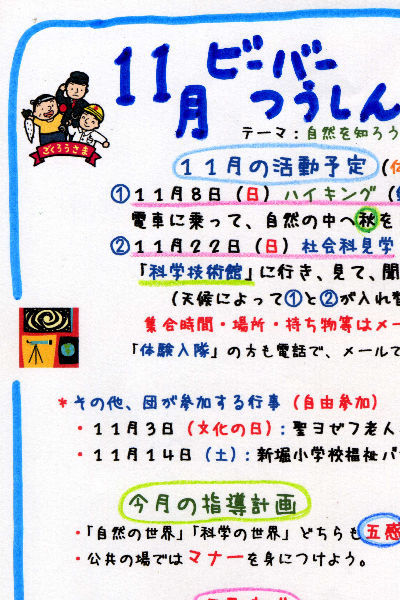 11月
ビーバー
つうしん
テーマ：自然を知ろう
ごくろうさま
11月の活動予定
①11月8日（日）ハイキング
電車に乗って、自然の中へ秋を
②11月22日（日）社会科見学
「科学技術館」に行き、見て、聞
（天候によって①と②が入れ
集合時間・場所・持ち物等はメー
「体験入隊」の方も電話で、メールで
*その他、団が参加する行事（自由参加）
・11月3日（文化の日）：聖ヨゼフ老人
・11月14日（土）：新堀小学校福祉バ
今月の指導計画
・「自然の世界」「科学の世界」どちらも五感
・公共の場ではマナーを身につけよう。